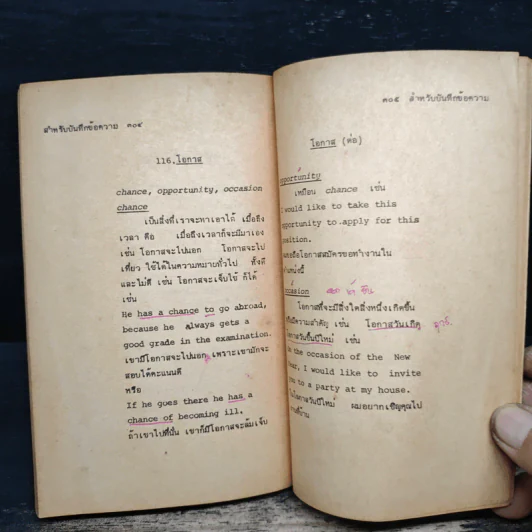 สำหรับบันทึกข้อความ ๓๐๔
116. โอกาส
chance, opportunity, occasion
chance
เป็นสิ่งที่เราจะหาเอาได้ เมื่อถึง
เวลา คือ เมื่อถึงเวลาก็จะมีมาเอง
เช่น โอกาสจะไปนอก โอกาสจะไป
เที่ยว ใช้ได้ในความหมายทั่วไป ทั้งดี
และไม่ดี เช่น โอกาสจะเจ็บไข้ ก็ได้
เช่น
He has a chance to go abroad,
because he always gets a
good grade in the examination.
เขามีโอกาสจะไปนอก เพราะเขามักจะ
สอบได้คะแนนดี
หรือ
If he goes there he has a
chance of becoming ill.
ถ้าเขาไปที่นั่น เขาก็มีโอกาสจะล้มเจ็บ
๓๐๕ สำหรับบันทึกข้อความ
โอกาส (ต่อ)
opportunity
เหมือน chance เช่น
I would like to take this
opportunity to apply for this
position.
โอกาสสมัครขอทำงานใน
ตำแหน่งนี้
occasion
โอกาสที่จะมีสิ่งใดสิ่งหนึ่งเกิดขึ้น
มีความสำคัญ เช่น โอกาสวันเกิด
โอกาสวันขึ้นปีใหม่ เช่น
the occasion of the New
Year, I would like to invite
you to a party at my house.
ในโอกาสวันปีใหม่ ผมอยากเชิญคุณไป
ที่บ้าน